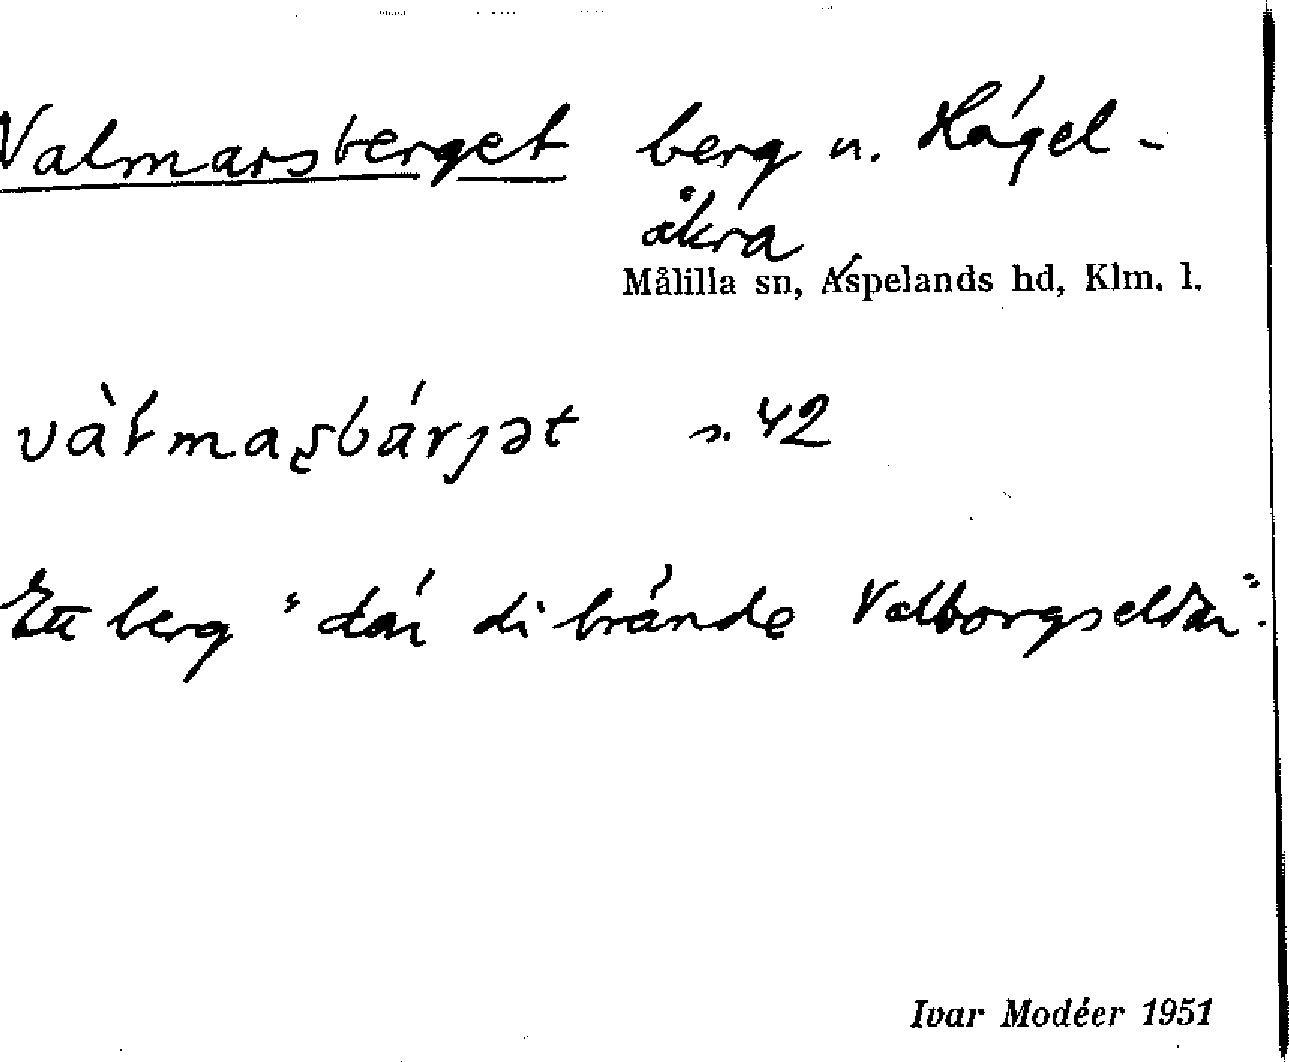 Valmarsberget berg u. Hägel-
åkra
Målilla sn, Aspelands hd, Klm. l.
vàɫmaʂbárjət s. 42
Ett berg "där di brände Valborgseldar".
Ivar Modéer 1951